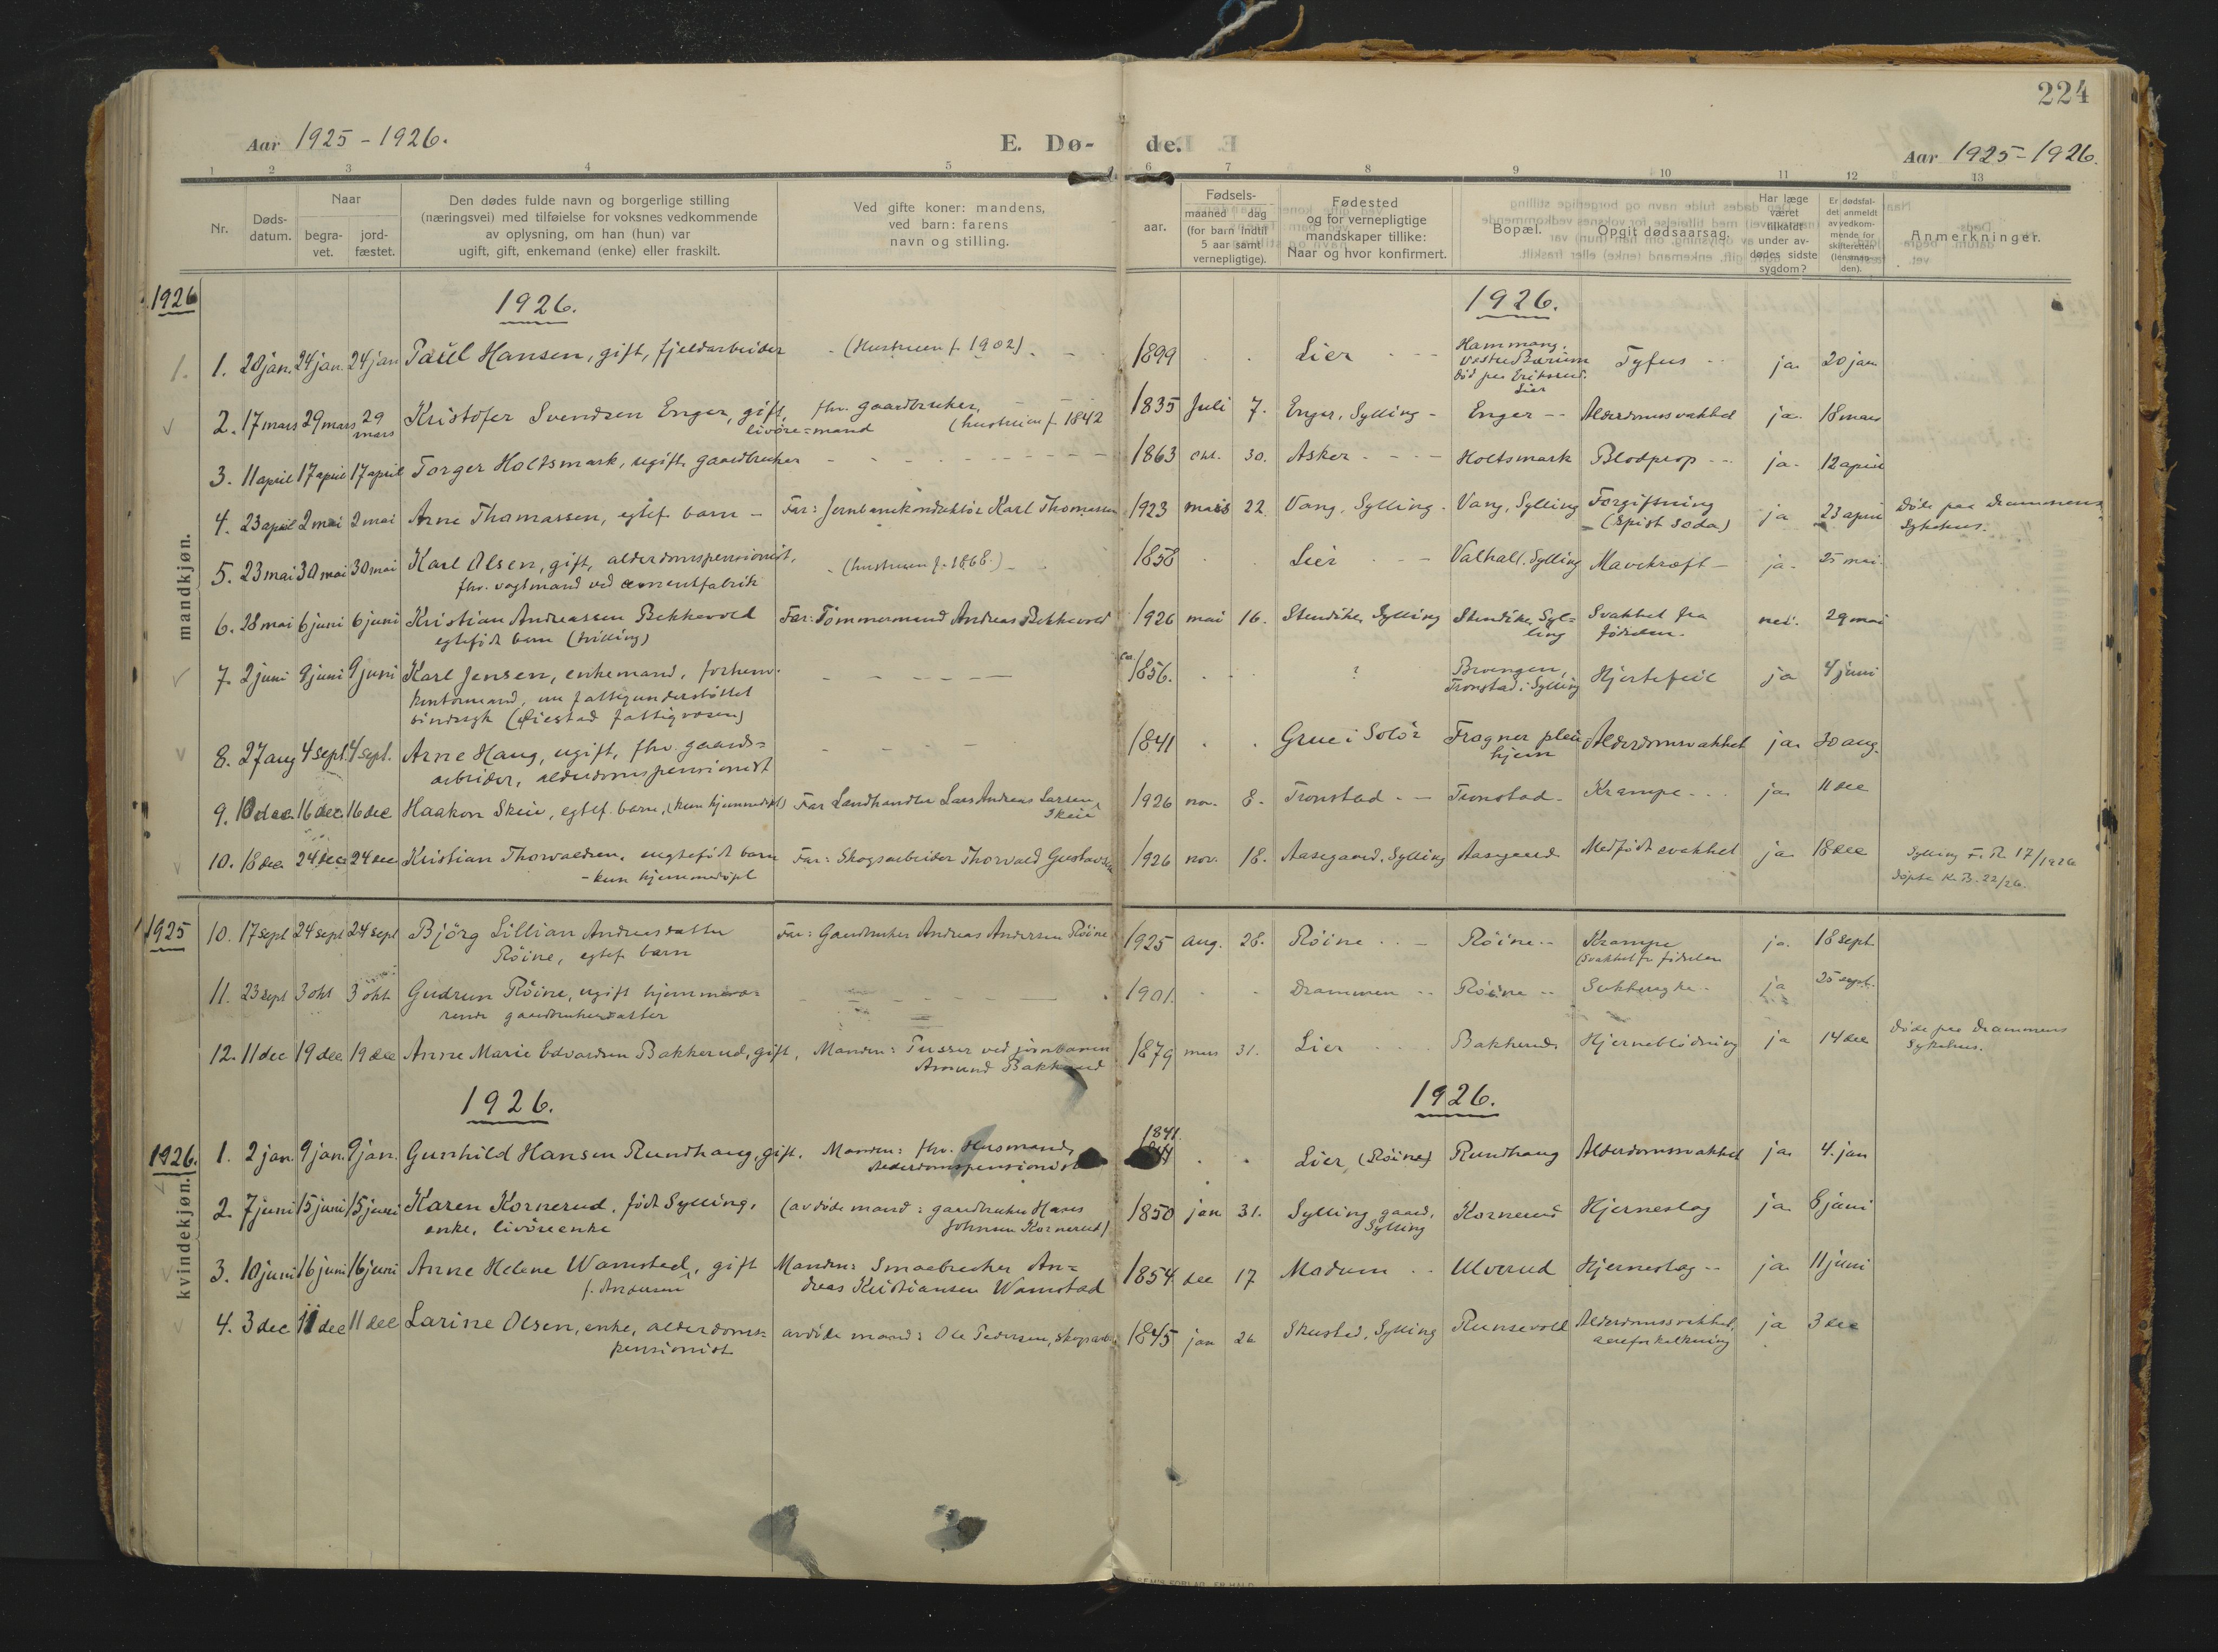 224
Aar 1925-1926.
E. Dø- de.
Aar 1925-1926.
1 2 3 4 5 6 7 8 9 10 11 12 13
Nr.
Døds-
datum.
Naar
begra-
vet.
jord-
fæstet.
Den dødes fulde navn og borgerlige stilling
(næringsvei) med tilføielse for voksnes vedkommende
av oplysning, om han (hun) var
ugift, gift, enkemand (enke) eller fraskilt.
Ved gifte koner: mandens,
ved barn: farens
navn og stilling.
Fødsels-
aar.
maaned dag
(for barn indtil
5 aar samt
vernepligtige).
Fødested
og for vernepligtige
mandskaper tillike:
Naar og hvor konfirmert.
Bopæl.
Opgit dødsaarsag.
Har læge
været
tilkaldt
under av-
dødes sidste
sygdom?
Er dødsfal-
det anmeldt
av vedkom-
mende for
skifteretten
(lensman-
den).
Anmerkninger.
mandkjøn.
1926
1926. 1926.
1. 1. 20 jan. 24 jan. 24 jan Paul Hansen, gift, fjeldarbeider - (Hustruen f. 1902) 1899 Lier Hammang, Tyfus ja 20 jan
Vestre Bærum
død paa Eriksrud.
Lier
2. 17 mars 29 mars 29 mars Kristofer Svendsen Enger, gift, fhv. gaardbruker, 1835 Juli 7. Enger, Sylling - Enger -- Alderdomssvakhet ja. 18 mars
livøre=mand (hustruen f. 1842
3. 11 april 17 april 17 april Torger Holtsmark, ugift, gaardbruker 1863 okt. 30. Asker - Holtsmark Blodprop -- ja- 12 april
4. 23 april 2 mai 2 mai Arne Thomassen, egtef. barn - Far: Jernbanekonduktør Karl Thomassen 1923 mars 22 Vang, Sylling - Vang, Sylling Forgiftning ja 23 april Døde paa Drammens
(spist soda) Sykehus.
5. 23 mai 30 mai 30 mai Karl Olsen, gift, alderdomspensionist, - (hustruen f. 1868.) - 1858 Lier Valhall. Sylling Mavekræft - ja- 25 mai.
fhv. vagtmand ved cementfabrik
6. 28 mai 6 juni 6 juni Kristian Andreassen Bekkevold Far: Tømmermand Andreas Bekkevold 1926 mai 16. Stendike, Sylling Stendike, Syl= Svakhet fra nei. 29 mai
egtefødt barn (tvilling) ling fødselen.
7. 2 juni 9 juni 9 juni Karl Jensen, enkemand, forhenv. ca 1856. ? Hjertefeil ja 4 juni
kontormand, nu fattigunderstøttet Tronstad i Sylling
sindssyk (Øiestad fattigvæsen)
8. 27 aug 4 sept. 4 sept. Arne Haug, ugift, fhv. gaards= 1841 Grue i Solør Frogner pleie Alderdomssvakhet ja 30 aug.
arbeider, alderdomspensionist hjem
9. 10 dec. 16 dec. 16 dec Haakon Skeie, egtef. barn, (kun hjemmedøpt) Far Landhandler Lars Andreas Larsen 1926 nov. 8. Tronstad -- Tronstad - Krampe ja 11 dec
Skeie
10. 18 dec 24 dec 24 dec Kristian Thorvaldsen, uegtefødt barn Far: Skogsarbeider Thorvald Gustavsen 1926 nov. 18. Aasegaard, Sylling Aasegaard Medfødt svakhet ja 18 dec Sylling F. R. 17/1926
- kun hjemmedøpt døpte K.B. 22/26.
1925 10. 17 sept 24 sept 24 sept Bjørg Lillian Andreasdatter Far: Gaardbruker Andreas Andersen Røine 1925 aug. 28. Røine - Røine -- Krampe ja. 18 sept
Røine, egtef. barn (svakhet fr. fødselen
11. 23 sept 3 okt 3 okt. Gudrun Røine, ugift hjemmevæ= 1901. Drammen -- Røine -- Sukkersyke - ja 25 sept.
rende gaardbrukerdatter
12. 11 dec 19 dec. 19 dec Anne Marie Edvardsen Bakkerud, gift, Manden: Pusser ved jernbanen 1879 mars 31. Lier Bakkerud Hjerneblødning ja 14 dec Døde paa Drammens
Amund Bakkerud Sykehus.
1926. 1926.
kvindekjøn.
1926. 1. 2 jan. 9 jan. 9 jan. Gunhild Hansen Rundhaug, gift. Manden: fhv. Husmand, 1841. Lier (Røine) Rundhaug Alderdomssvakhet ja 4. jan
Alderdomspensionist
2. 7 juni 15 juni 15 juni Karen Kornerud, født Sylling, (avdøde mand: gaardbruker Hans 1850 jan 31. Sylling gaard, Kornerud Hjerneslag ja 8 juni
enke, livøreenke Johnsen Kornerud) Sylling
3. 10 juni 16 juni 16 juni Anne Helene Wamstad, gift Manden: Smaabruker An= 1854 dec 17 Modum Ulverud Hjerneslag -- ja 11 juni
f. Andersen dreas Kristiansen Wamstad
4. 3 dec 11 dec 11 dec Larine Olsen, enke, alderdoms= avdøde mand: Ole Pedersen, skogsarb. 1845 jan 26 Skustad, Sylling Runsevold Alderdomssvakhet, ja 3 dec
pensionist aareforkalkning